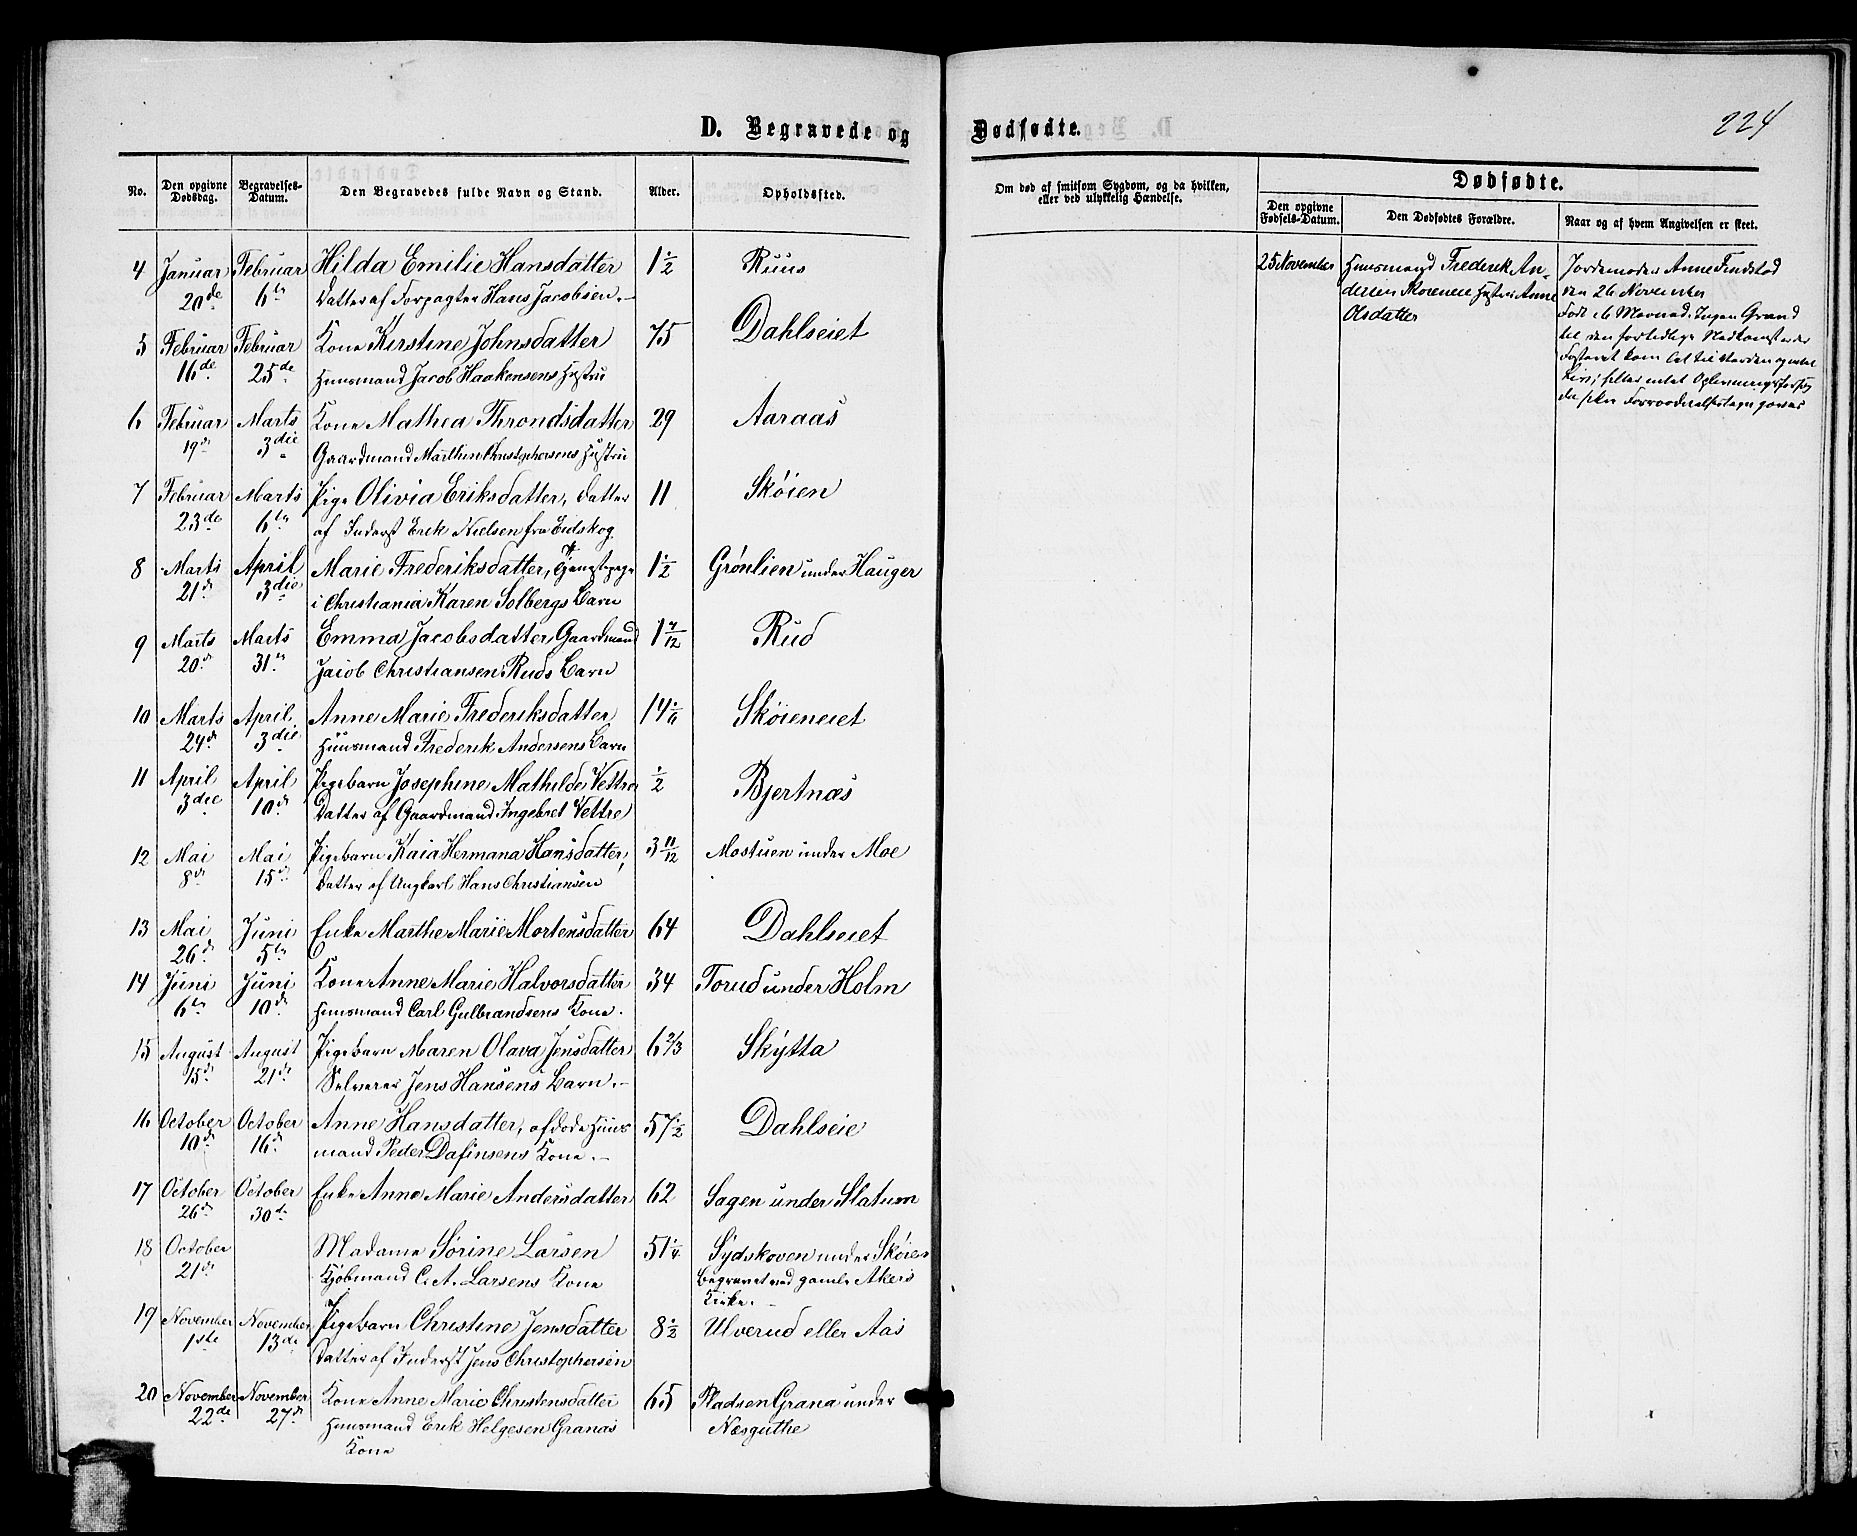 D. Begravede og
Dødfødte.
224
No.
Den opgivne Dødsdag.
Begravelses-Datum.
Den Begravedes fulde Navn og Stand.
Alder.
Opholdssted.
Om død af smitsom Sygdom, og da hvilken,
eller ved ulykkelig Hændelse.
Dødfødte.
Den opgivne Fødsels-Datum.
Den Dødfødtes Forældre.
Naar og af hvem Angivelsen er skeet.
4 Januar Februar Hilda Emilie Hansdatter 1 1/2 Ruus
20de 6te Datter af Forpagter Hans Jacobsen.
5 Februar Februar Kone Kirstine Johnsdatter 75 Dahlseiet
16de 25de Huusmand Jacob Haakensens Hustru
6 Februar Marts Kone Mathea Throndsdatter 29 Aaraas
19de 3die Gaardmand Marthin Christophersens Hustru
7 Februar Marts Pige Olivia Eriksdatter, Datter 11 Sköien
23de 6te af Inderst Erik Nielsen fra Eidskog.
8 Marts April Marie Frederiksdatter, Tjenestepige 1 1/2 Grönlien under Hauger
21de 3die i Christiania Karen Solbergs Barn
9 Marts Marts Emma Jacobsdatter Gaardmand 1 7/12 Rud
20de 31te Jacob Christiansen Ruds Barn
10 Marts April Anne Marie Frederiksdatter 14 Sköieneiet
24de 3die Huusmand Frederik Andersens Barn
11 April April Pigebarn Josephine Mathilde Vettre 1/2 Bjertnæs
3die 10de Datter af Gaardmand Ingebret Vettre
12 Mai Mai Pigebarn Kaia Hermana Hansdatter, 3 11/12 Mostuen under Moe
8de 15de Datter af Ungkarl Hans Christiansen
13 Mai Juni Enke Marthe Marie Mortensdatter 64 Dahlseiet
26de 5te
14 Juni Juni Kone Anne Marie Halvorsdatter 34 Torud under Holm
6te 10de Huusmand Carl Gulbrandsens Kone.
15 August August Pigebarn Maren Olava Jensdatter 6 2/3 Skÿtta
15de 21de Selveier Jens Hansens Barn.
16 October October Anne Hansdatter, afdöde Huus 57 1/2 Dahlseie
10de 16de mand Peder Dafinsens Kone.
17 October October Enke Anne Marie Andersdatter 62 Sagen under Slatum
26de 30de
18 October Madame Sörine Larsen 51 1/4 Sydskoven under Sköien
21de Kjöbmand C. A. Larsens Kone Begravet ved gamle Akers
Kirke.
19 November November Pigebarn Christine Jensdatter 8 1/2 Ulverud eller Aas
1ste 13de Datter af Inderst Jens Christophersen
20 November November Kone Anne Marie Christensdatter 65 Pladsen Grana under
22de 27de Huusmand Erik Helgesen Granas Næsguthe
Kone
25 November Huusmand Frederik An-
dersen Skoieneie Hustru Anne
Olsdatter
Jordemoder Anne Findstad
den 26 November
Födt 6 Maaned. Ingen Grund
til den fortidlige Nedkomst
Fosteret kom til Verden
Liv;